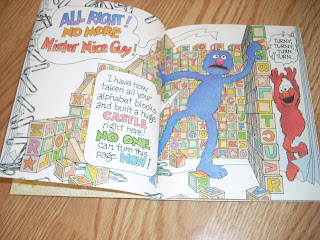 ALL RIGHT!
NO MORE
Mister Nice Guy!
I have now
taken all your
alphabet blocks
and built a huge
CASTLE
right here!
NO ONE
can turn this
page NOW!
TURNY,
TURNY
TURN
TURN...